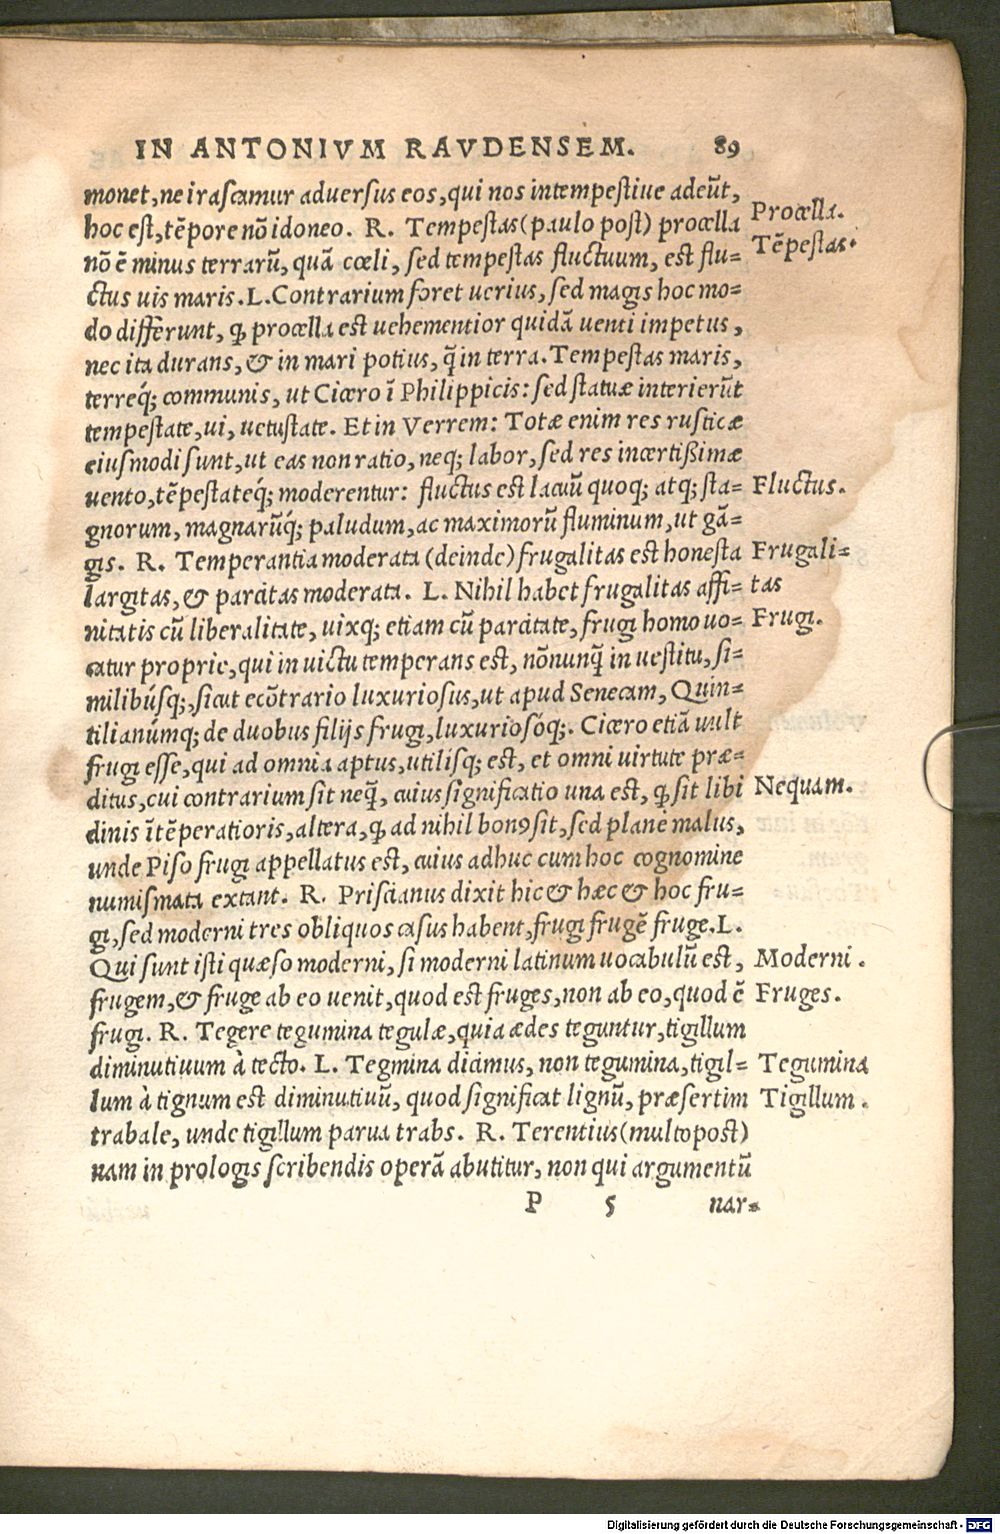 IN ANTONIVM RAVDENSEM. 89
monet, ne irascamur aduersus eos, qui nos intempestiue adeūt,
hoc est, tēpore nō idoneo. R. Tempestas (paulo post) procella
Procella.
nō ē minus terrarū, quā cœli, sed tempestas fluctuum, est flu=
Tēpestas.
ctus uis maris. L. Contrarium foret uerius, sed magis hoc mo=
do differunt, ꝙ procella est uehementior quidā uenti impetus,
nec ita durans, & in mari potius, q̃ in terra. Tempestas maris,
terreq́; communis, ut Cicero ī Philippicis: sed statuæ interierūt
tempestate, ui, uetustate. Et in Verrem: Totæ enim res rusticæ
eiusmodi sunt, ut eas non ratio, neq; labor, sed res incertißimæ
uento, tēpestateq́; moderentur: fluctus est lacuū quoq; atq; sta=
Fluctus.
gnorum, magnarūq́; paludum, ac maximorū fluminum, ut gā=
gis. R. Temperantia moderata (deinde) frugalitas est honesta
Frugali=
largitas, & parcitas moderata. L. Nihil habet frugalitas affi=
tas
nitatis cū liberalitate, uixq; etiam cū parcitate, frugi homo uo=
Frugi.
catur proprie, qui in uictu temperans est, nōnunq̃ in uestitu, si=
milibúsq;, sicut ecōtrario luxuriosus, ut apud Senecam, Quin=
tilianúmq; de duobus filijs frugi, luxuriosóq;. Cicero etiā uult
frugi esse, qui ad omnia aptus, utilisq; est, et omni uirtute præ=
ditus, cui contrarium sit neq̃, cuius significatio una est, ꝙ sit libi
Nequam.
dinis ītēperatioris, altera, ꝙ ad nihil bonꝯ sit, sed planè malus,
unde Piso frugi appellatus est, cuius adhuc cum hoc cognomine
numismata extant. R. Priscianus dixit hic & hæc & hoc fru=
gi, sed moderni tres obliquos casus habent, frugi frugē fruge. L.
Qui sunt isti quæso moderni, si moderni latinum uocabulū est,
Moderni.
frugem, & fruge ab eo uenit, quod est fruges, non ab eo, quod ē
Fruges.
frugi. R. Tegere tegumina tegulæ, quia ædes teguntur, tigillum
diminutiuum à tecto. L. Tegmina dicimus, non tegumina, tigil=
Tegumina
lum à tignum est diminutiuū, quod significat lignū, præsertim
Tigillum.
trabale, unde tigillum parua trabs. R. Terentius (multo post)
nam in prologis scribendis operā abutitur, non qui argumentū
P 5 nar=
Digitalisierung gefördert durch die Deutsche Forschungsgemeinschaft - DFG